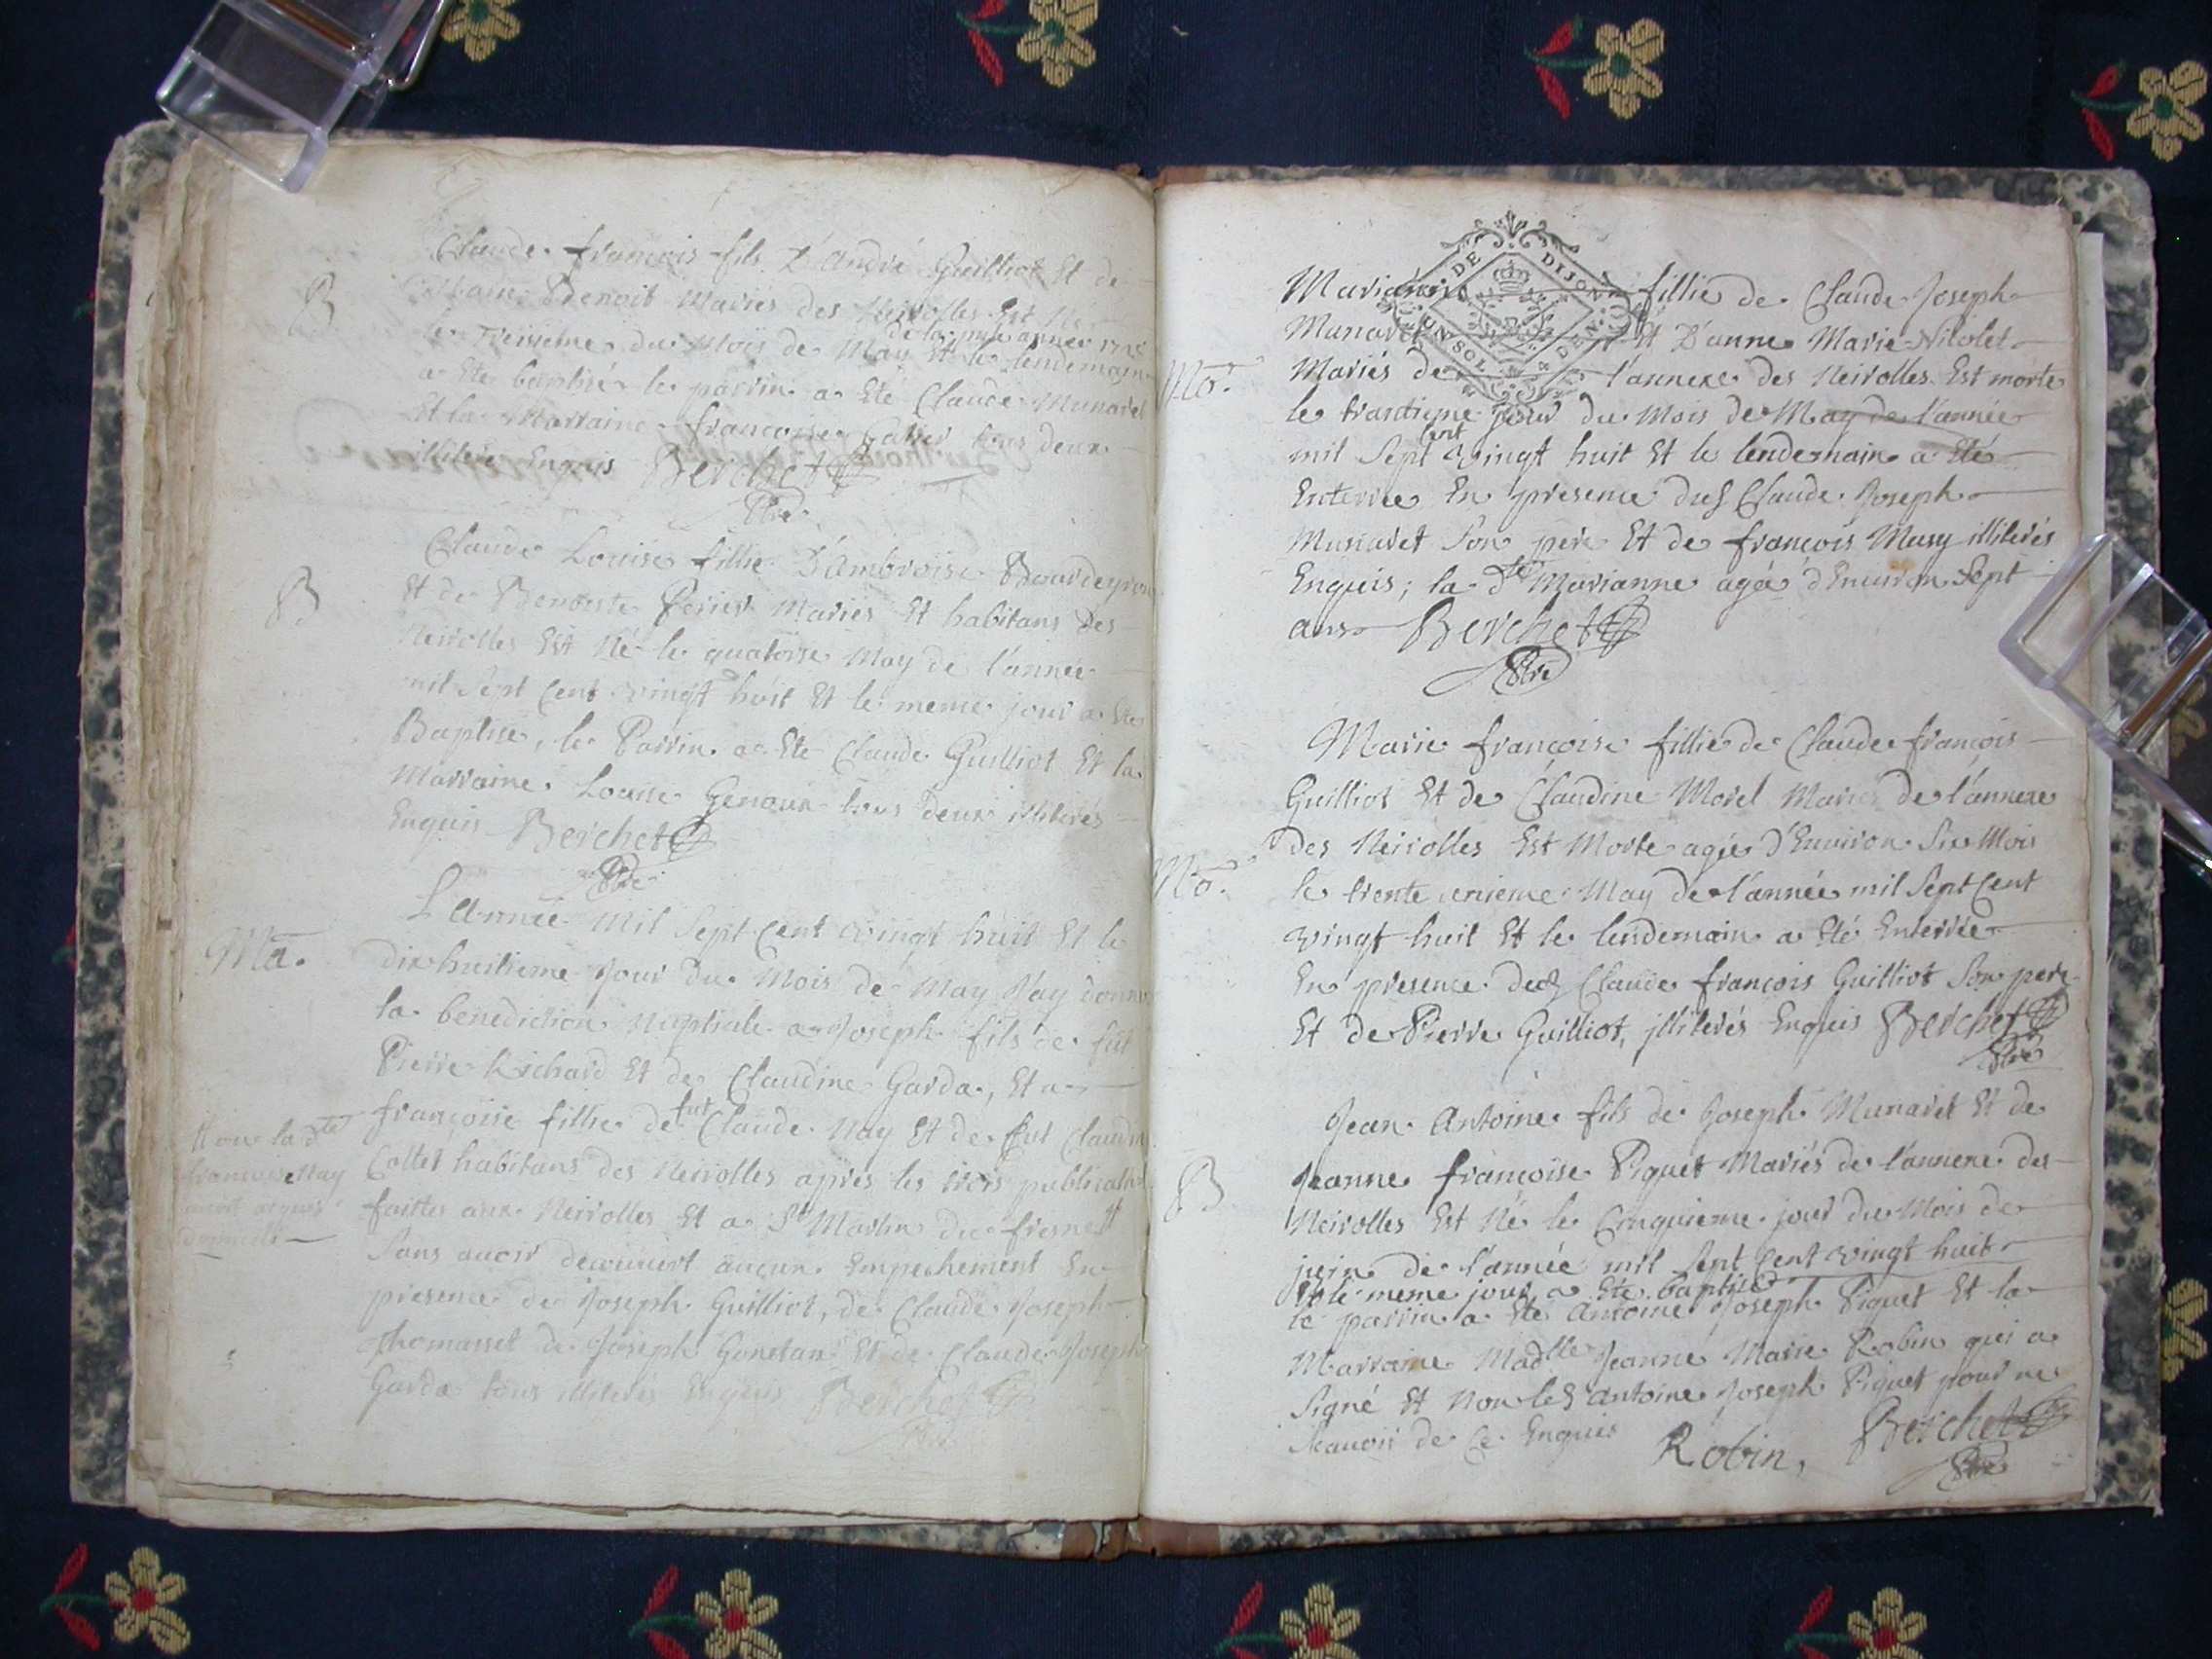 Claude françois fils d'André Guilliot Et de
B
Marie Benoit Mariés des Neirolles Est Né
de la pnte année 1728
le treisieme du Mois de May Et le lendemain
a Eté baptisé le parrin a Eté Claude Munaret
Et la Marraine françoise tous deux
illiteré Enquis Berchet
Ptre
Claude Louise fillie D'Ambroise Bourdeyron
B
Et de Benoiste Perier Mariés Et habitans Des
Neirolles Est Né le quatorse May de l'année
mil Sept Cent vingt huit Et le meme jour a Ete
Baptisé, le Parrin a Ete Claude Guilliot Et la
Marraine Louise Genoux tous deux illiterés
Enquis Berchet
Ptre
L'année Mil Sept Cent vingt huit Et le
Ma.
dix huitieme Jour du Mois de May J'ay donné
la benediction Nuptiale a Joseph fils de fut
Pierre Richard Et de Claudine Garda, Et a
françoise fillie de fut Claude Nay Et de fut Claudine
Collet habitans des Neirolles apres les trois publications
faittes aux Neirolles Et a St Martin du fresne
Non la dte
francoise Nay
Sans avoir decouvert aucun Empechement En
presence de Joseph Guilliot, de Claude Joseph
Thomasset de Joseph Gonetan Et de Claude Joseph
Garda tous illiterés Enquis Berchet
Ptre
GEN. DE DIJON
UN SOL 8 DEN.
Marianne fillie de Claude Joseph
Munaret Et D'anne Marie Nicolet
Mo.
Mariés de l'annexe des Neirolles Est morte
le trantieme jour du Mois de May de l'année
mil Sept Cent vingt huit Et le lendemain a Eté
Enterrée En presence dud Claude Joseph
Munaret Son pere Et de françois Musy illiterés
Enquis; la dte Marianne agée d'Environ Sept
ans Berchet
Ptre
Marie françoise fillie de Claude françois
Guilliot Et de Claudine Morel Mariés de l'annexe
des Neirolles Est Morte agée d'Environ Six Mois
Mo.
le trente unieme May de l'année mil Sept Cent
vingt huit Et le lendemain a Eté Enterrée
En presence dud Claude françois Guilliot Son pere
Et de Pierre Guilliot, illiterés Enquis Berchet
Ptre
Jean Antoine fils de Joseph Munaret Et de
B
Jeanne françoise Piquet Mariés de l'annexe des
Neirolles Est Né le Cinquieme jour du Mois de
juin de l'année mil Sept Cent vingt huit
Et le meme jour a Ete baptisé
le parrin a Eté Antoine Joseph Piquet Et la
Marraine Madlle Jeanne Marie Robin qui a
Signé Et Non led Antoine Joseph Piquet pour ne
Scavoir de Ce Enquis
Robin, Berchet
Ptre